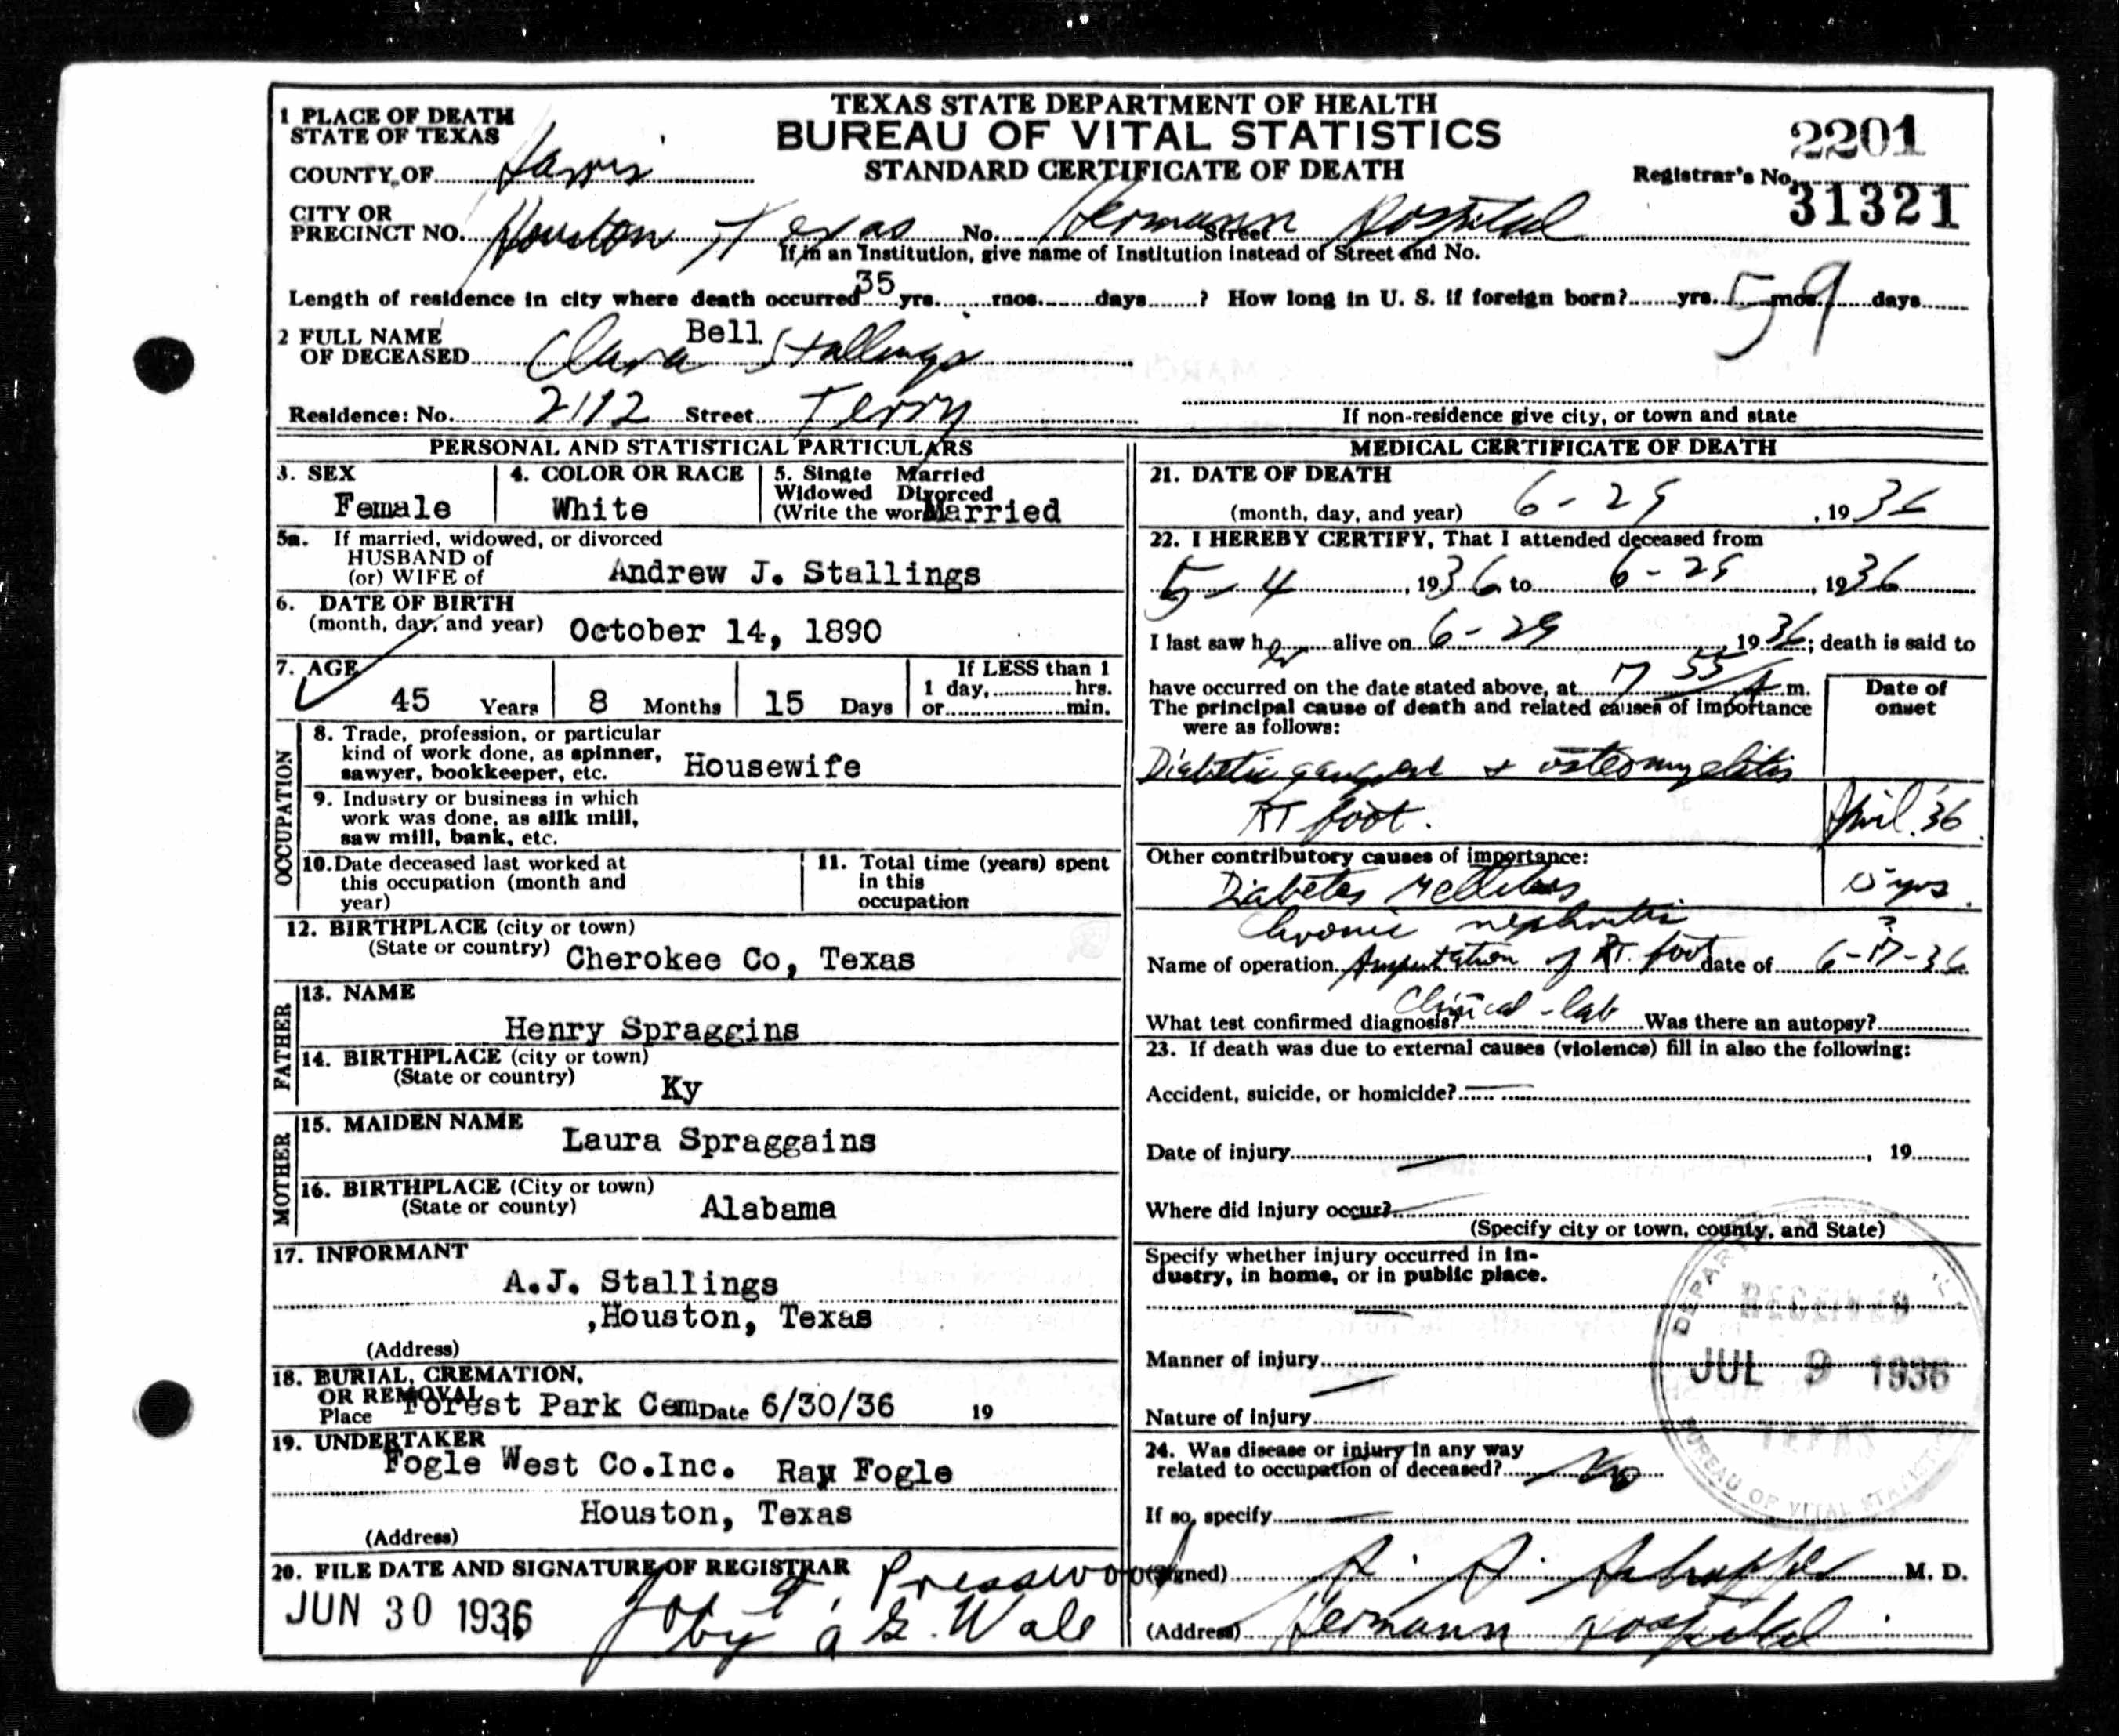 TEXAS STATE DEPARTMENT OF HEALTH
BUREAU OF VITAL STATISTICS
STANDARD CERTIFICATE OF DEATH
2201
Registrar's No.
31321
1 PLACE OF DEATH
STATE OF TEXAS
COUNTY OF Harris
CITY OR
PRECINCT NO. Houston, Texas No. Hermann Street Hospital
If in an Institution, give name of Institution instead of Street and No.
Length of residence in city where death occurred 35 yrs. mos. days ? How long in U. S. if foreign born? yrs. mos. days
59
2 FULL NAME
OF DECEASED Clara Bell Stallings
Residence: No. 2112 Street Terry
If non-residence give city, or town and state
PERSONAL AND STATISTICAL PARTICULARS
3. SEX
Female
4. COLOR OR RACE
White
5. Single Married
Widowed Divorced
(Write the word) Married
5a. If married, widowed, or divorced
HUSBAND of
(or) WIFE of Andrew J. Stallings
6. DATE OF BIRTH
(month, day, and year) October 14, 1890
7. AGE
45 Years 8 Months 15 Days
If LESS than 1
1 day, hrs.
or min.
OCCUPATION
8. Trade, profession, or particular
kind of work done, as spinner,
sawyer, bookkeeper, etc. Housewife
9. Industry or business in which
work was done, as silk mill,
saw mill, bank, etc.
10. Date deceased last worked at
this occupation (month and
year)
11. Total time (years) spent
in this
occupation
12. BIRTHPLACE (city or town)
(State or country) Cherokee Co, Texas
FATHER
13. NAME
Henry Spraggins
14. BIRTHPLACE (city or town)
(State or country) Ky
MOTHER
15. MAIDEN NAME Laura Spraggains
16. BIRTHPLACE (City or town)
(State or county) Alabama
17. INFORMANT
A.J. Stallings
,Houston, Texas
(Address)
18. BURIAL, CREMATION,
OR REMOVAL
Place Forest Park Cem Date 6/30/36 19
19. UNDERTAKER
Fogle West Co.Inc. Ray Fogle
Houston, Texas
(Address)
20. FILE DATE AND SIGNATURE OF REGISTRAR
JUN 30 1936
Presswood
by a G. Wale
MEDICAL CERTIFICATE OF DEATH
21. DATE OF DEATH
(month, day, and year) 6-29, 1936
22. I HEREBY CERTIFY, That I attended deceased from
5-4, 1936 to 6-29, 1936
I last saw her alive on 6-29 1936; death is said to
have occurred on the date stated above, at 7 55 A m.
The principal cause of death and related causes of importance
were as follows:
Date of
onset
Diabetic gangrene & osteomyelitis
RT foot. April '36
Other contributory causes of importance:
Diabetes Mellitus yrs.
Chronic nephritis ?
Name of operation Amputation of RT. foot date of 6-17-36
Clinical - lab
What test confirmed diagnosis? Was there an autopsy?
23. If death was due to external causes (violence) fill in also the following:
Accident, suicide, or homicide?
Date of injury , 19
Where did injury occur?
(Specify city or town, county, and State)
Specify whether injury occurred in in-
dustry, in home, or in public place.
Manner of injury
Nature of injury
24. Was disease or injury in any way
related to occupation of deceased? No
If so, specify
(Signed) M. D.
(Address) Hermann Hospital
RECEIVED
JUL 9 1936
TEXAS
BUREAU OF VITAL STATISTICS